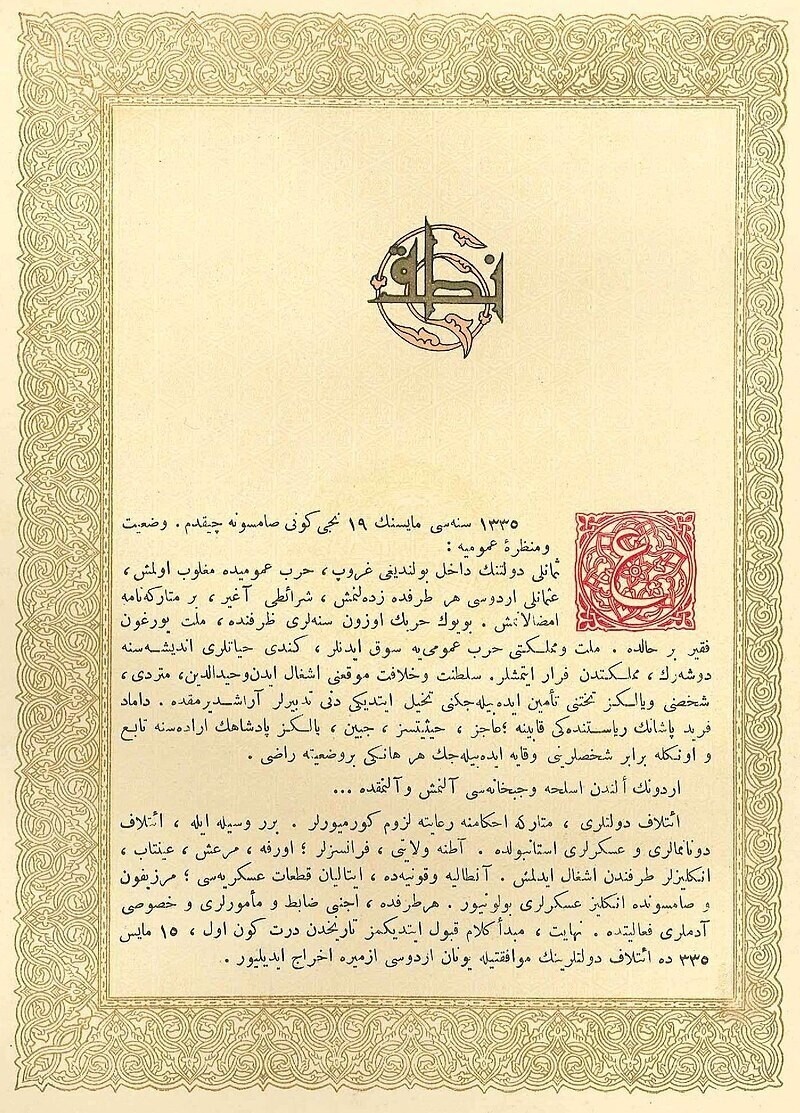 نطق
١٣٣٥ سنه‌سی مایسنك ١٩ نجی كونی صامسونه چیقدم . وضعیت
ومنظرۀ عمومیه :
ع
ثمانلی دولتنك داخل بولندیغی غروپ ، حرب عمومیده مغلوب اولمش ،
عثمانلی اردوسی هر طرفده زده‌لنمش ، شرائطی آغیر ، بر متاركه‌نامه
امضالانمش . بویوك حربك اوزون سنه‌لری ظرفنده ، ملت یورغون
فقیر بر حالده . ملت ومملكتی حرب عمومی‌یه سوق ایدنلر ، كندی حیاتلری اندیشه‌سنه
دوشه‌رك ، مملكتدن فرار ایتمشلر . سلطنت وخلافت موقعنی اشغال ایدن وحیدالدین ، متردی ،
شخصنی ویالكز تختنی تأمین ایده‌بیله‌جكنی تخیل ایتدیكی دنی تدبیرلر آراشدیرمقده . داماد
فرید پاشانك ریاستنده‌كی قابینه ؛ عاجز ، حیثیتسز ، جبین ، یالكز پادشاهك اراده‌سنه تابع
و اونكله برابر شخصلرینی وقایه ایده‌بیله‌جك هر هانكی بروضعیته راضی .
اردونك ألندن اسلحه وجبخانه‌سی آلنمش وآلنمقده ...
ائتلاف دولتلری ، متاركه احكامنه رعایته لزوم كورمیورلر . برر وسیله ایله ، ائتلاف
دونانمالری و عسكرلری استانبولده . آطنه ولایتی ، فرانسزلر ؛ اورفه ، مرعش ، عینتاب ،
انكلیزلر طرفندن اشغال ایدلمش . آنطالیه وقونیه‌ده ، ایتالیان قطعات عسكریه‌سی ؛ مرزیفون
و صامسونده انكلیز عسكرلری بولونیور . هرطرفده ، اجنبی ضابط و مأمورلری و خصوصی
آدملری فعالیتده . نهایت ، مبدأ كلام قبول ایتدیكمز تاریخدن درت كون اول ، ١٥ مایس
٣٣٥ ده ائتلاف دولتلرینك موافقتیله یونان اردوسی ازمیره اخراج ایدیلیور .